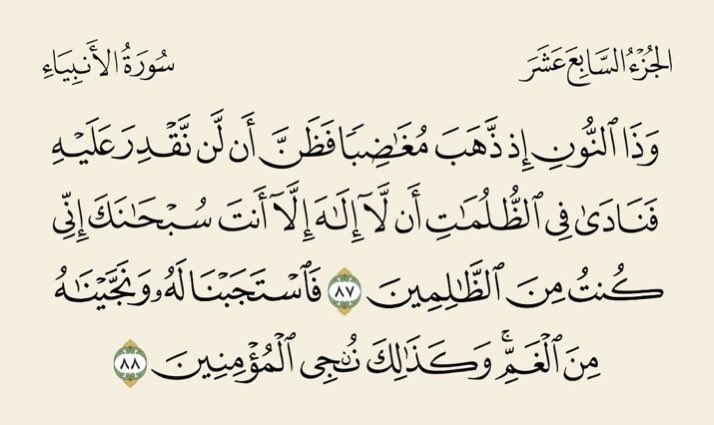 الجُزْءُ السَّابِعَ عَشَرَ
سُورَةُ الأَنبِيَاءِ
وَذَا ٱلنُّونِ إِذ ذَّهَبَ مُغَٰضِبٗا فَظَنَّ أَن لَّن نَّقۡدِرَ عَلَيۡهِ
فَنَادَىٰ فِي ٱلظُّلُمَٰتِ أَن لَّآ إِلَٰهَ إِلَّآ أَنتَ سُبۡحَٰنَكَ إِنِّي
كُنتُ مِنَ ٱلظَّٰلِمِينَ ٨٧ فَٱسۡتَجَبۡنَا لَهُۥ وَنَجَّيۡنَٰهُ
مِنَ ٱلۡغَمِّۚ وَكَذَٰلِكَ نُـۨجِي ٱلۡمُؤۡمِنِينَ ٨٨